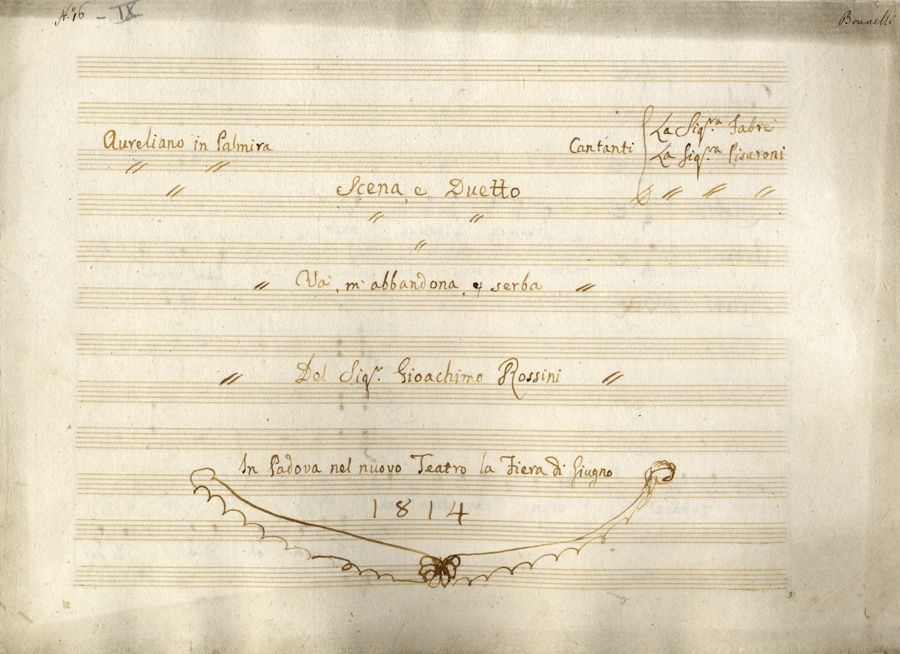 N.º 16 - IX
Brunelli
Aureliano in Palmira
Cantanti
La Sig.ra Fabre
La Sig.ra Pisaroni
Scena, e Duetto
Va', m'abbandona, e serba
Del Sig.r Gioachimo Rossini
In Padova nel nuovo Teatro la Fiera di Giugno
1814